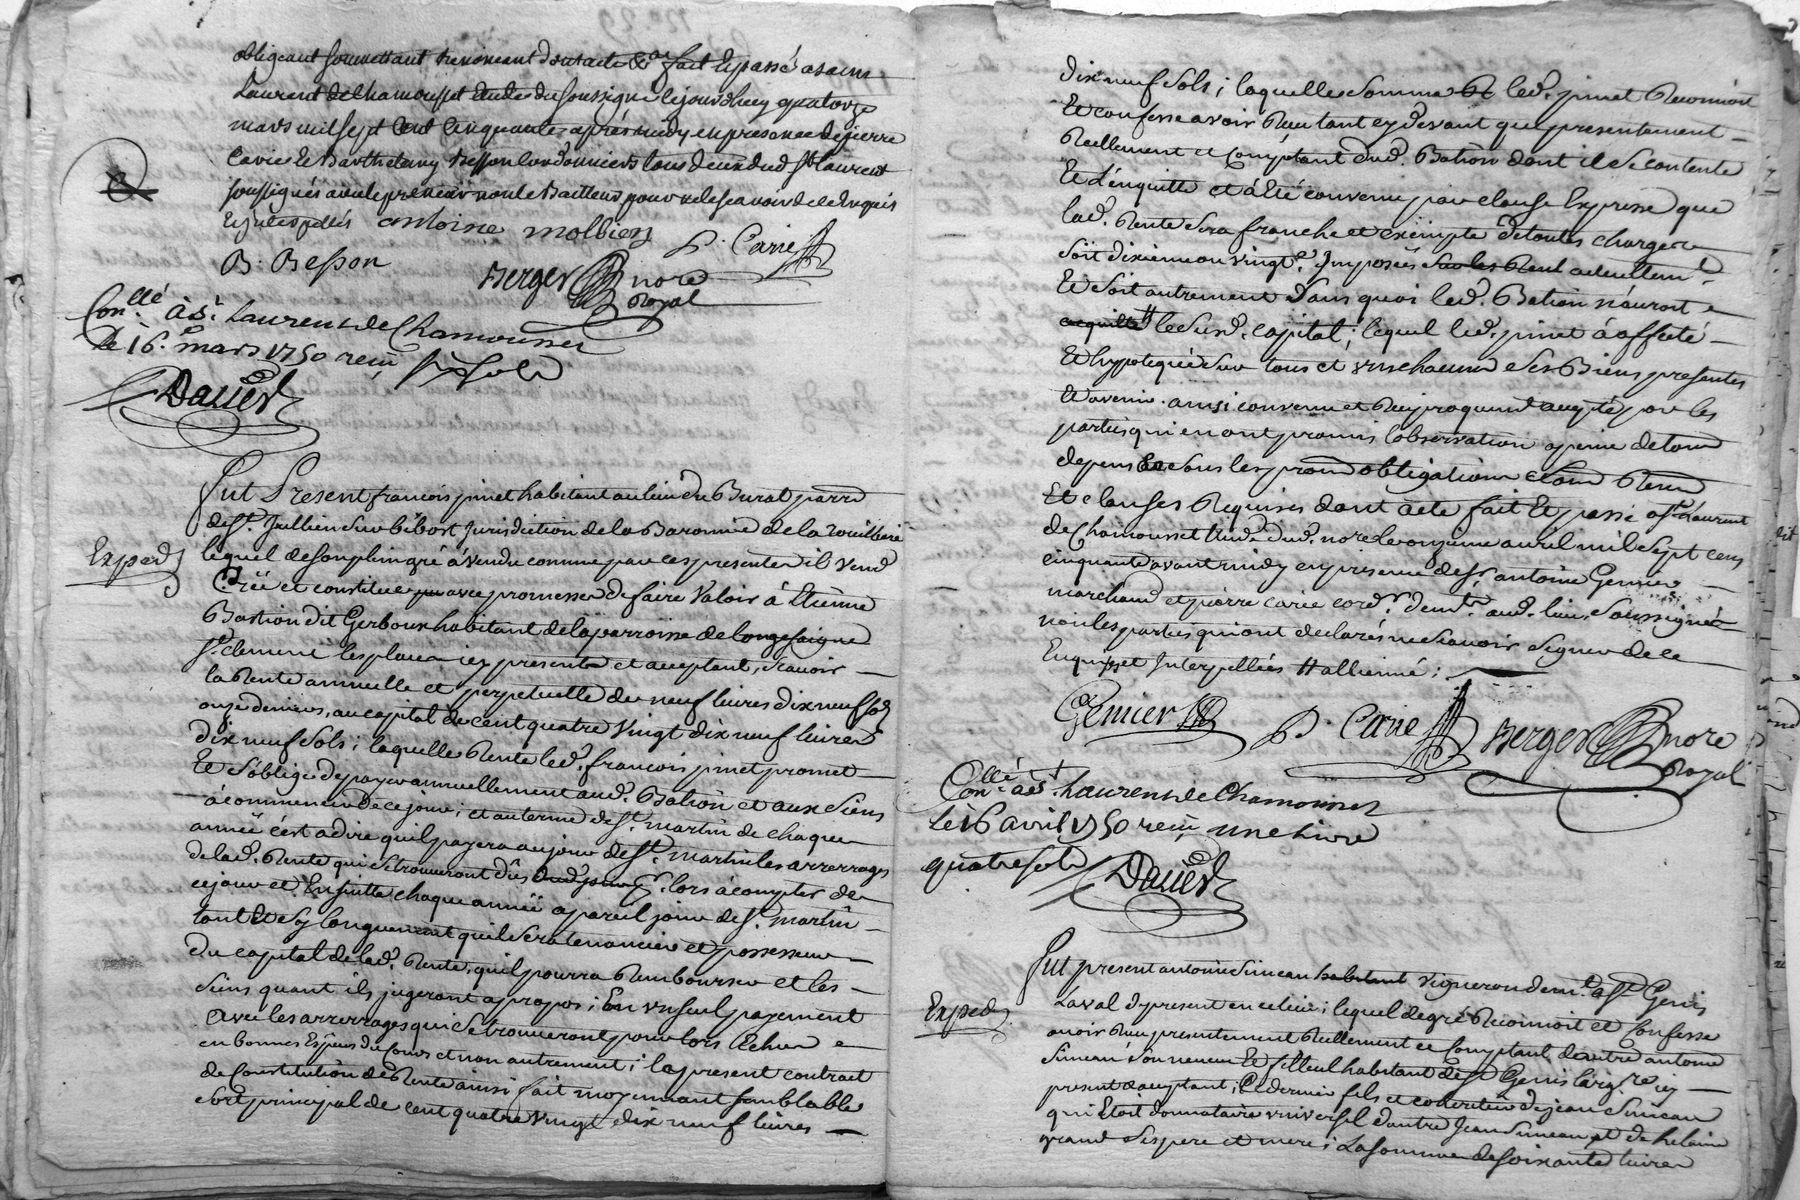 obligeant soumettant renonceant dont acte & a fait et passé a saint
Laurent de Chamousset etude du soussigné le jourdhuy quatorze
mars mil sept cent cinquante apres midy en presence de pierre
Carie et Barthelemy Besson cordonniers tous deux dud St Laurent
soussignés avec le preneur non le Bailleur pour ne le scavoir de ce Enquis
et interpellés antoine molliere P. Carie
B. Besson Berger nore
Royal
Con.llé à St Laurent de Chamousset
le 16 mars 1750 reçu sols
Daued
fut Present francois pinet habitant au lieu du Burat parre
de St Jullien sur bibost Jurisdiction de la Baronnie de la
Exped
lequel de son plein gré à vendu comme par ces presentes il vend
Créé et constitue avec promesse de faire Valoir à Etienne
Bastion dit Gerboux habitant de la parroisse de longesaigne
St clement les places icy present et acceptant, scavoir
la Rente annuelle et perpetuelle de neuf livres dix neuf sols
onze deniers, au capital de cent quatre vingt dix neuf livres
dix neuf sols; laquelle Rente led. francois pinet promet
Et s'oblige de payer annuellement aud. Bation et aux siens
à commencer de ce jour; et au terme de St martin de chaque
année c'est a dire quil payera au jour de St martin les arrerages
de lad. Rente qui se trouveront dûs lors à compter de
ce jour et Ensuitte chaque année a pareil jour de St martin
tant et sy longuement quil sera tenancier et possesseur
du capital de lad. Rente, quil pourra Rembourser et les
siens quant ils jugeront apropos; En un seul payement
avec les arrerages qui se trouveront pour lors Echus
en bonnes Espesses du Cours et non autrement; le present contract
de Constitution de Rente ainsi fait moyennant semblable
sort principal de cent quatre vingt dix neuf livres
dix neuf sols; laquelle somme led. pinet Reconnoit
Et confesse avoir Reçu tant cy devant que presentement
Reellement et Comptant dud. Bation dont il se contente
Et l'enquitte et à Eté convenu par clause Expresse que
lad. Rente sera franche et exempte de toutes charges
soit dixieme ou vingt.e Imposées actuellem.t
Et soit autrement sans quoi led. Bation n'auroit
acquitté le susd. capital; lequel led. pinet à affecté
Et hypotequé sur tous et un chacuns ses Biens presents
Et avenir. ainsi convenu et Reciproquem.t accepté par les
parties qui en ont promis l'observation a peine de tous
depens sous les obligations
Et clauses Requises dont acte fait Et passé a St Laurent
de Chamousset Etude dud. nore le onzieme avril mil sept cens
cinquante avant midy en presence de Sr antoine Gemier
marchand et pierre carie cord.r demt. aud. lieu, soussignés
non les parties qui ont declarés ne scavoir signer de ce
Enquises et Interpellées
Gemier P. Carie Berger nore
Royal
Con.llé à St Laurent de Chamousset
le 16 avril 1750 reçu une Livre
quatre sols Daued
fut present antoine Simean habitant vigneron demt a St Genis
Laval de present en ce lieu; lequel de gré Reconnoit et Confesse
Exped
avoir Reçu presentement Reellement et Comptant d'autre antoine
Simean son neveu Et filleul habitant de St Genis icy
present et acceptant; Ce dernier fils et coheritier de jean Simean
qui Etoit donnataire universel d'autre Jean Simean et de helaine
grand ses pere et mere; La somme de soixante livres